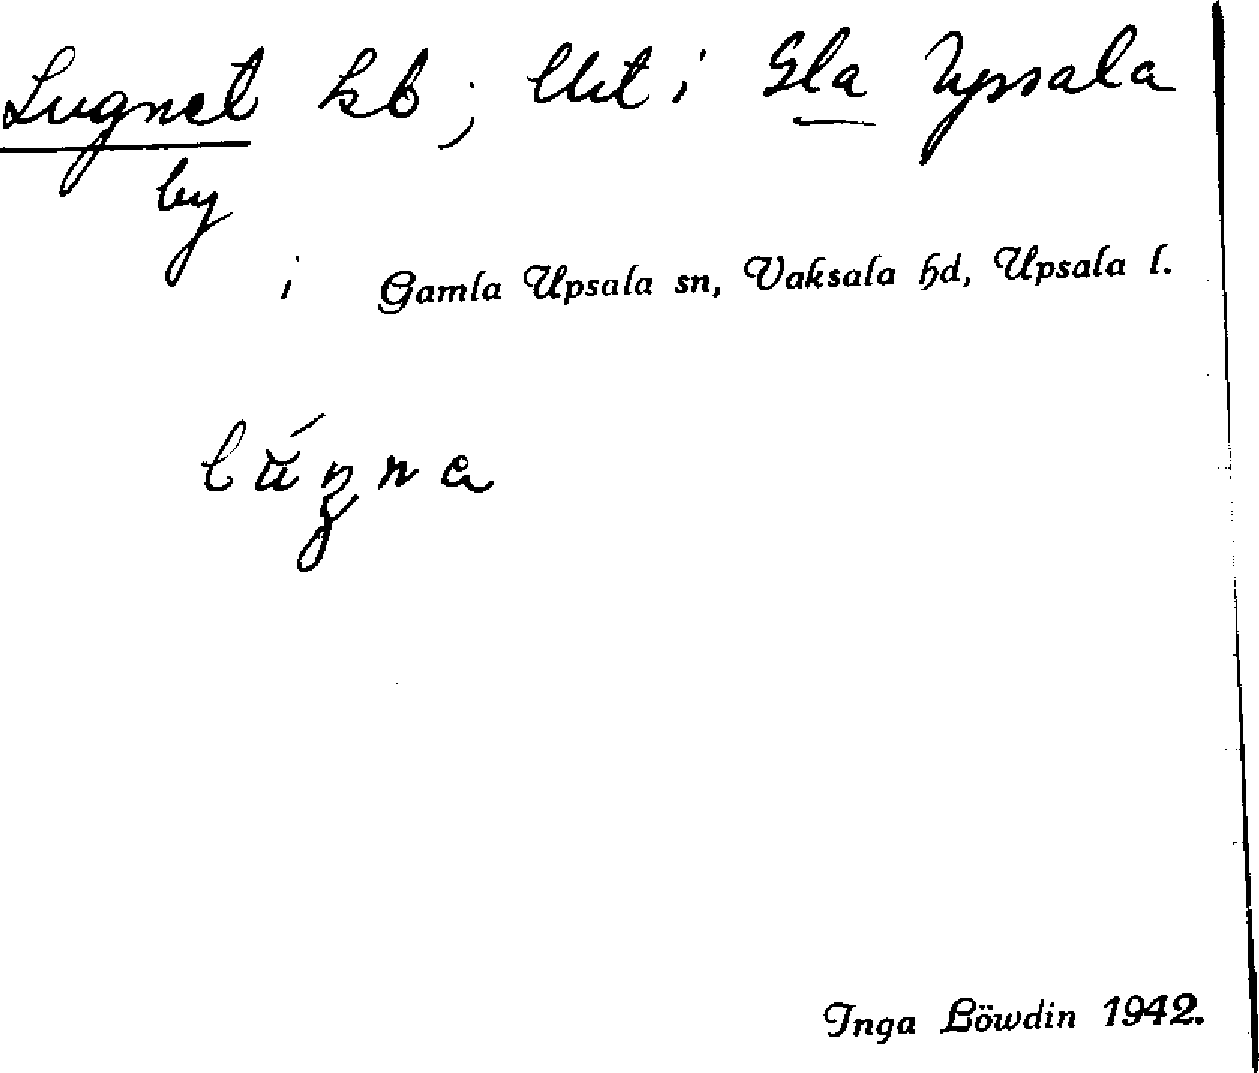 Lugnet kb; Utt i Gla Upsala
by
i Gamla Upsala sn, Vaksala hd, Upsala l.
Inga Löwdin 1942.